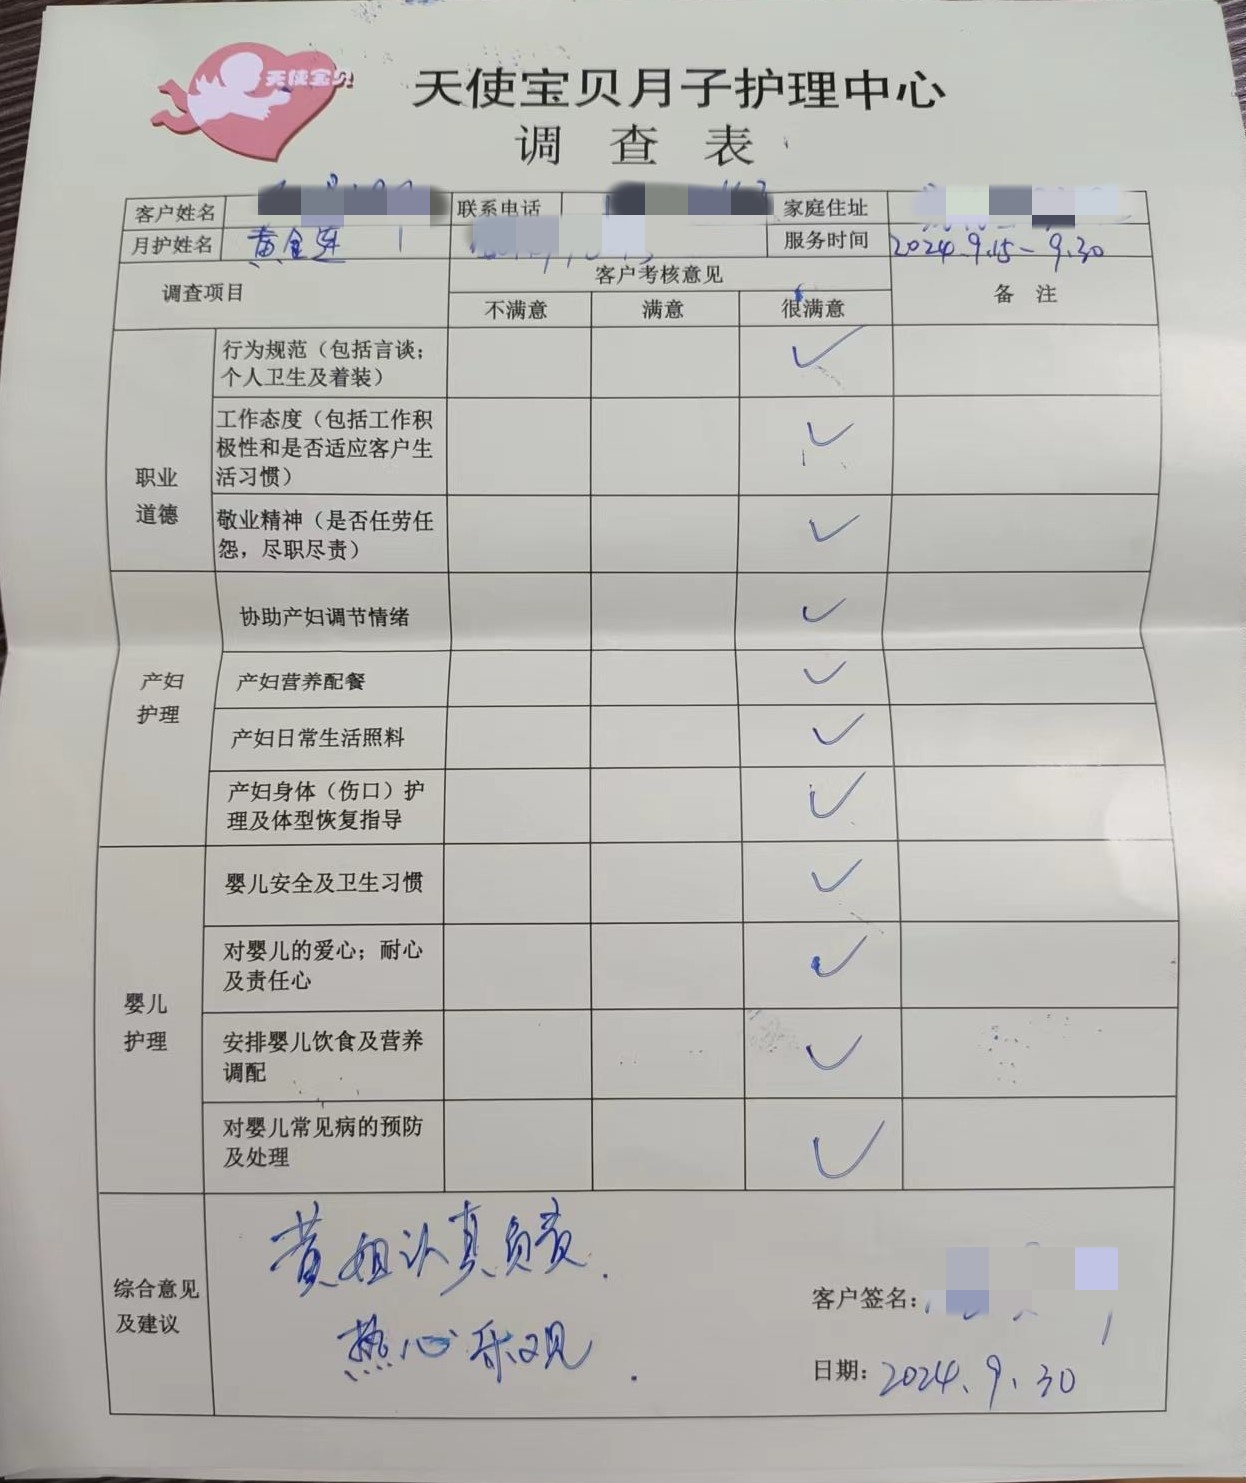 天使宝贝
天使宝贝月子护理中心
调查表
客户姓名 联系电话 家庭住址
月护姓名 黄金莲 服务时间 2024.9.15-9.30
调查项目 客户考核意见 备注
不满意 满意 很满意
职业
道德
行为规范（包括言谈；
个人卫生及着装）
工作态度（包括工作积
极性和是否适应客户生
活习惯）
敬业精神（是否任劳任
怨，尽职尽责）
产妇
护理
协助产妇调节情绪
产妇营养配餐
产妇日常生活照料
产妇身体（伤口）护
理及体型恢复指导
婴儿
护理
婴儿安全及卫生习惯
对婴儿的爱心；耐心
及责任心
安排婴儿饮食及营养
调配
对婴儿常见病的预防
及处理
综合意见
及建议
黄姐认真负责.
热心乐观.
客户签名：
日期：2024.9.30